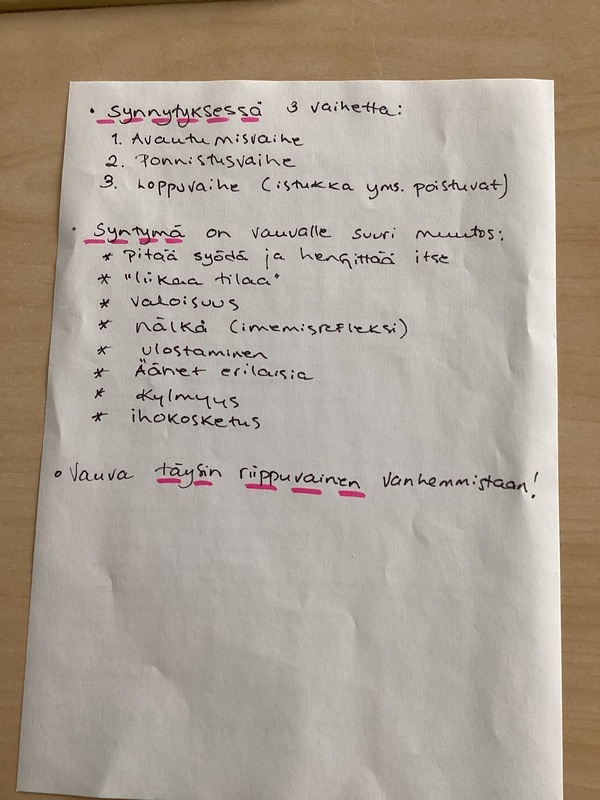 • Synnytyksessä 3 vaihetta:
1. Avautumisvaihe
2. Ponnistusvaihe
3. Loppuvaihe (istukka yms. poistuvat)
• Syntymä on vauvalle suuri muutos:
* Pitää syödä ja hengittää itse
* "liikaa tilaa"
* valoisuus
* nälkä (imemisrefleksi)
* ulostaminen
* Äänet erilaisia
* Kylmyys
* ihokosketus
• Vauva täysin riippuvainen vanhemmistaan!